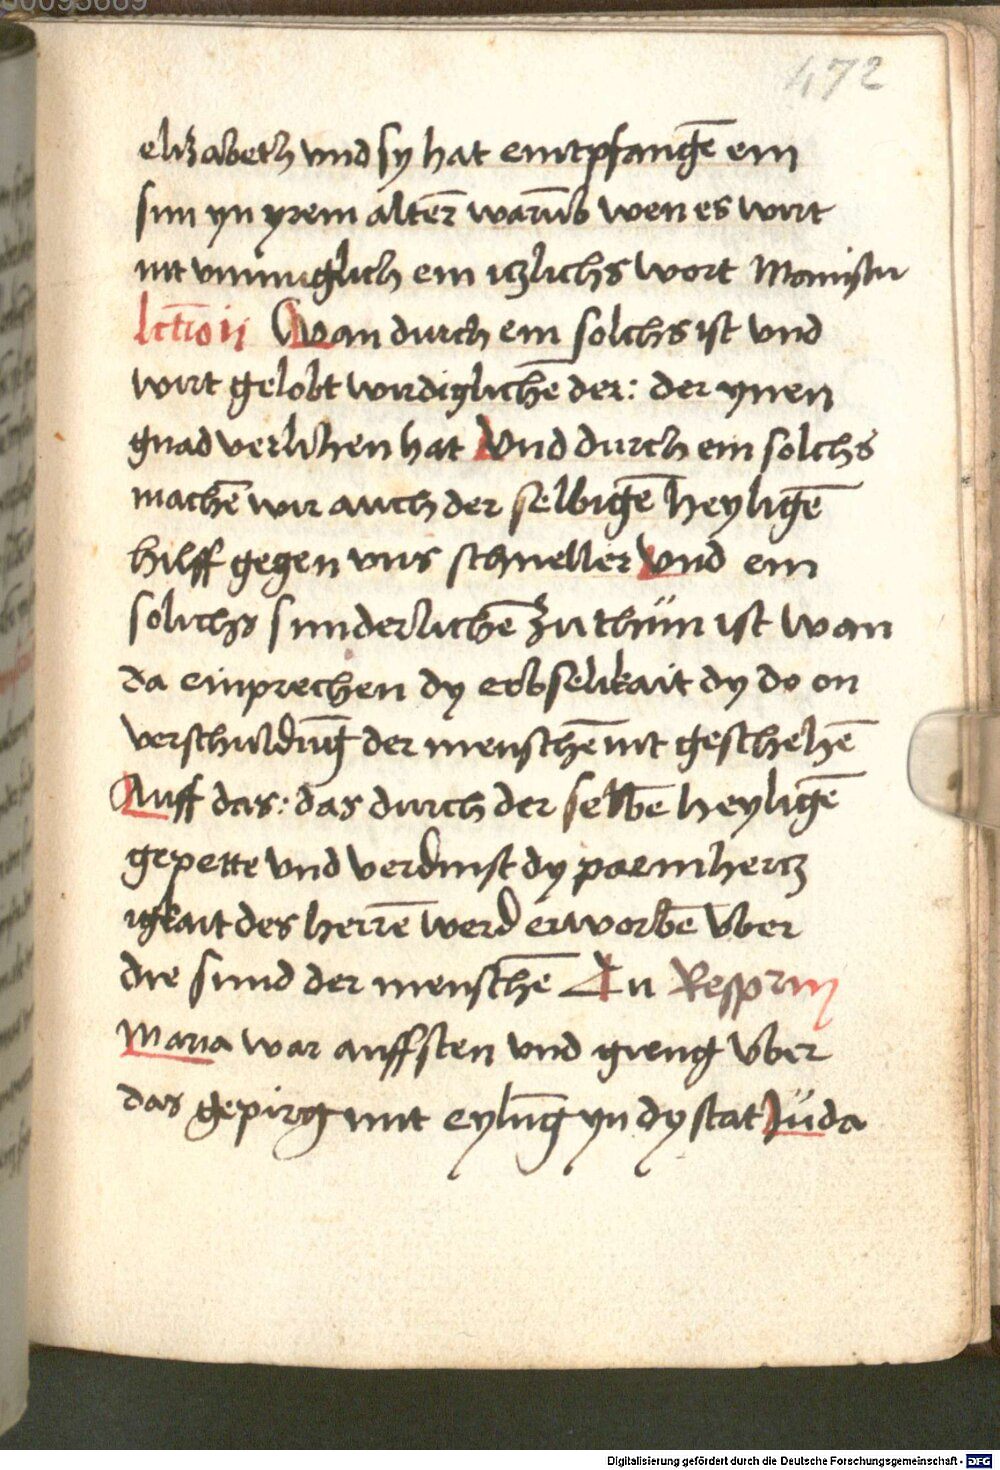 472
elizabeth vnd sy hat emtpfangē ein
sun yn yrem alter̄ warūb wen es wirt
nit vnmuglich ein iczlichs wort
lctīo ij Wan durch ein solchs ist vnd
wirt gelobt wirdiglichē der: der ynen
gnad verlihen hat Vnd durch ein solchs
machē wir auch der selbigē heyligē
hilff gegen vns schneller Vnd ein
solichs sunderlichē zu thün ist wan
da einprechen dy erbselikait dy do on
verschuldūg der menschē nit geschehē
Auff das: das durch der selbē heyligē
gepette vnd verdinst dy parmhercz
igkait des herrē werd erworbē vber
die sund der menschē Du Resprm
Maria war auffsten vnd gieng vber
das gepirg mit eylūg yn dy stat Jüda
Digitalisierung gefördert durch die Deutsche Forschungsgemeinschaft - DFG